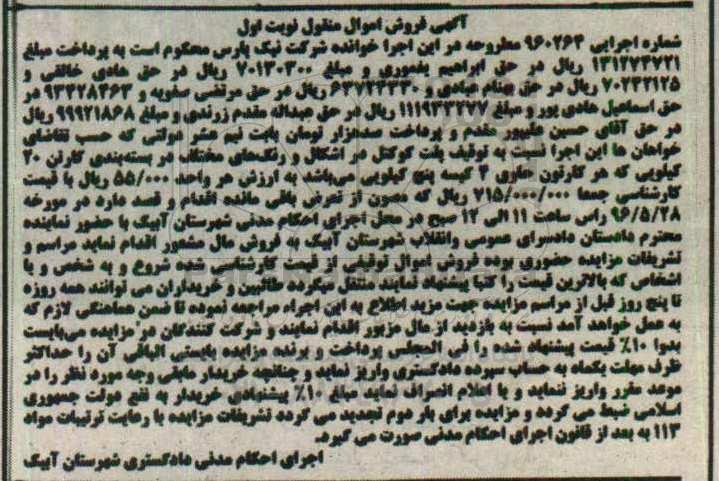 آگهی فروش اموال منقول نوبت اول
شماره اجرایی ۹۶۰۲۶۴ مطروحه در این اجرا خوانده شرکت نیک پارس محکوم است به پرداخت مبلغ
۱۳۱۲۷۳۷۲۱ ریال در حق ابراهیم یغموری و مبلغ ۷۰۱۳۰۳۰۰ ریال در حق هادی خالقی و
۷۰۲۴۲۱۲۵ ریال در حق بهنام عبادی و ۶۳۷۲۲۳۳۰ ریال در حق مرتضی صفویه و ۹۳۳۲۸۴۶۳ در
حق اسماعیل هادی پور و مبلغ ۱۱۱۹۴۳۲۷۷ ریال در حق عبداله مقدم زرندی و مبلغ ۹۹۹۲۱۸۶۸ ریال
در حق آقای حسین علیپور مقدم و پرداخت صدهزار تومان بابت نیم عشر دولتی که حسب تقاضای
خواهان ها این اجرا نسبت به توقیف پلت کوکتل در اشکال و رنگ‌های مختلف در بسته‌بندی کارتن ۲۰
کیلویی که هر کارتون حاوی ۴ کیسه پنج کیلویی می‌باشد به ارزش هر واحد ۵۵/۰۰۰ ریال با قیمت
کارشناسی جمعا ۷۱۵/۰۰۰/۰۰۰ ریال که مصون از تعرض باقی مانده اقدام و قصد دارد در مورخه
۹۶/۵/۲۸ راس ساعت ۱۱ الی ۱۲ صبح در محل اجرای احکام مدنی شهرستان آبیک با حضور نماینده
محترم دادستان دادسرای عمومی وانقلاب شهرستان آبیک به فروش مال مشهور اقدام نماید مراسم و
تشریفات مزایده حضوری بوده فروش اموال توقیفی از قیمت کارشناسی شده شروع و به شخص و یا
اشخاصی که بالاترین قیمت را کتبا پیشنهاد نمایند منتقل میگردد طالبین و خریداران می توانند همه روزه
تا پنج روز قبل از مراسم مزایده جهت مزید اطلاع به این اجراء مراجعه نموده تا ضمن هماهنگی لازم که
به عمل خواهد آمد نسبت به بازدید از مال مزبور اقدام نمایند و شرکت کنندگان در مزایده می‌بایست
بدوا ۱۰٪ قیمت پیشنهاد شده را فی المجلس پرداخت و برنده مزایده بایستی الباقی آن را حداکثر
ظرف مهلت یکماه به حساب سپرده دادگستری واریز نماید و چنانچه خریدار مابقی وجه مورد نظر را در
موعد مقرر واریز ننماید و یا اعلام انصراف نماید مبلغ ۱۰٪ پیشنهادی خریدار به نفع دولت جمهوری
اسلامی ضبط می گردد و مزایده برای بار دوم تجدید می گردد تشریفات مزایده با رعایت ترتیبات مواد
۱۱۳ به بعد از قانون اجرای احکام مدنی صورت می گیرد.
اجرای احکام مدنی دادگستری شهرستان آبیک